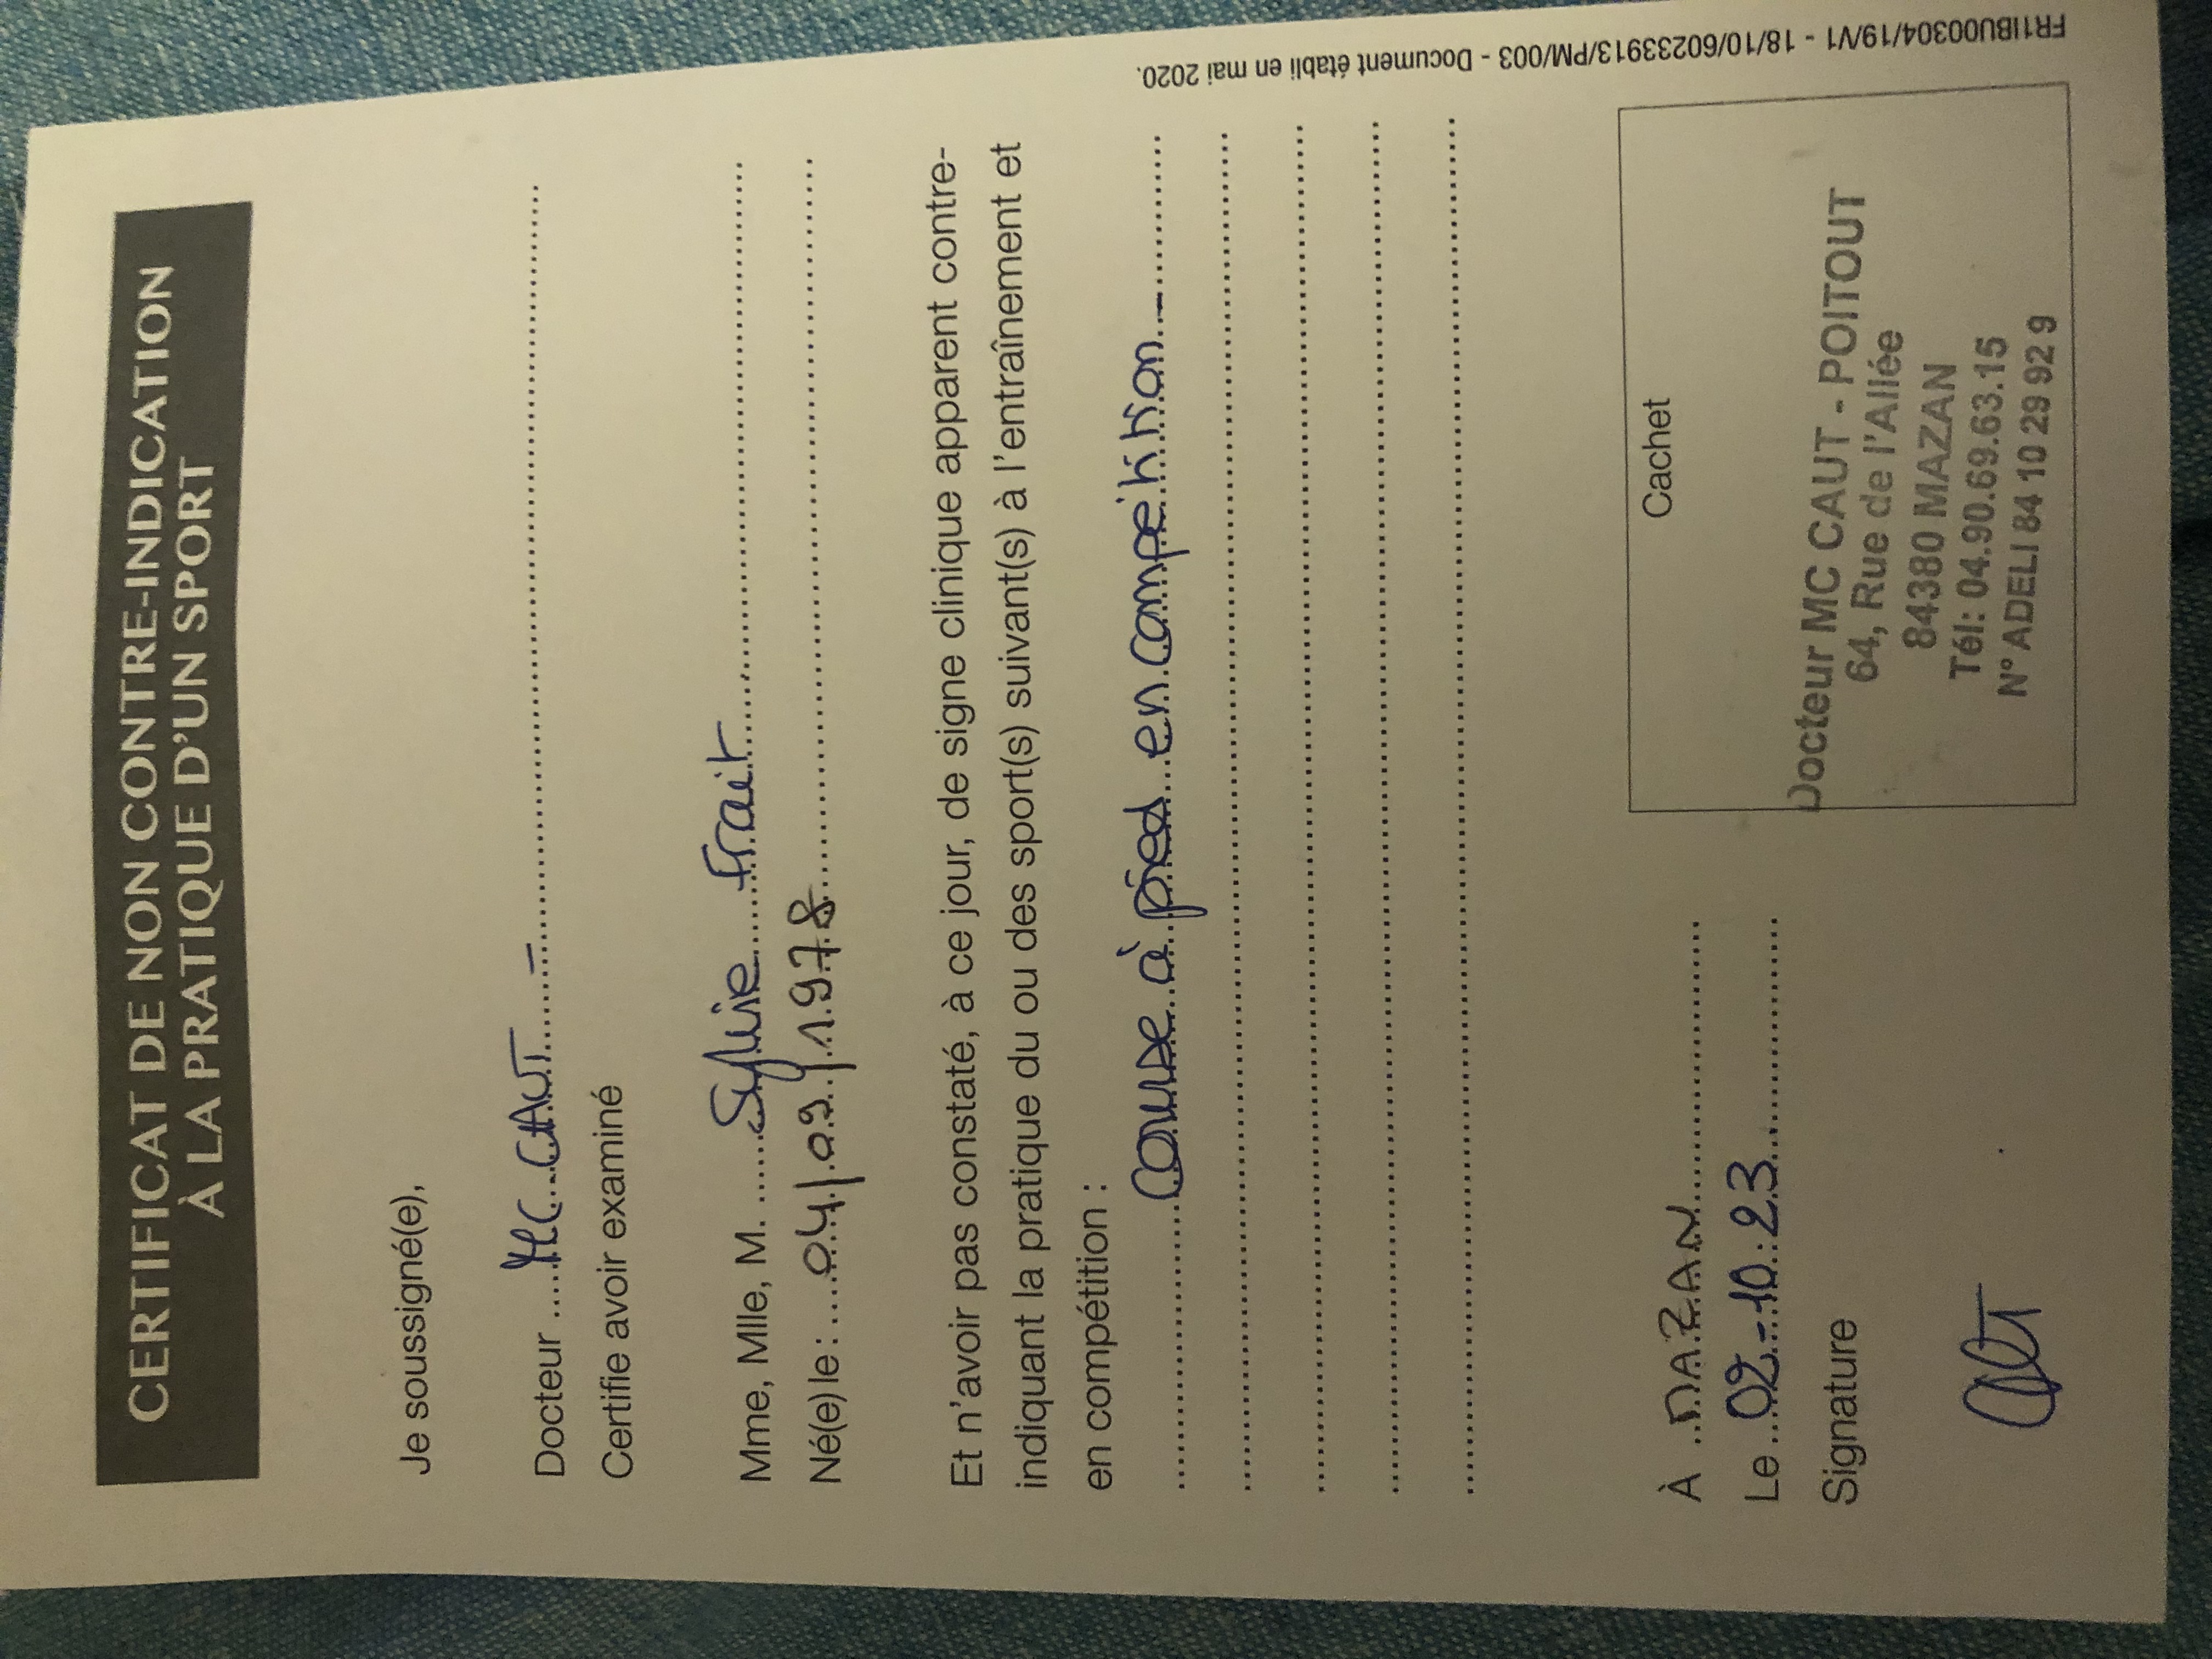 CERTIFICAT DE NON CONTRE-INDICATION
À LA PRATIQUE D'UN SPORT
Je soussigné(e),
Docteur ..... MC CAUT –
Certifie avoir examiné
Mme, Mlle, M. ...... Sylvie Frait
Né(e) le : .... 04/09/1978
Et n'avoir pas constaté, à ce jour, de signe clinique apparent contre-
indiquant la pratique du ou des sport(s) suivant(s) à l'entraînement et
en compétition :
course à pied en compétition –
À MAZAN
Le 02-10-23
Signature
Cachet
Docteur MC CAUT - POITOUT
64, Rue de l'Allée
84380 MAZAN
Tél: 04.90.69.63.15
N° ADELI 84 10 29 92 9
FR1IBU00304/19/V1 - 18/10/60233913/PM/003 - Document établi en mai 2020.